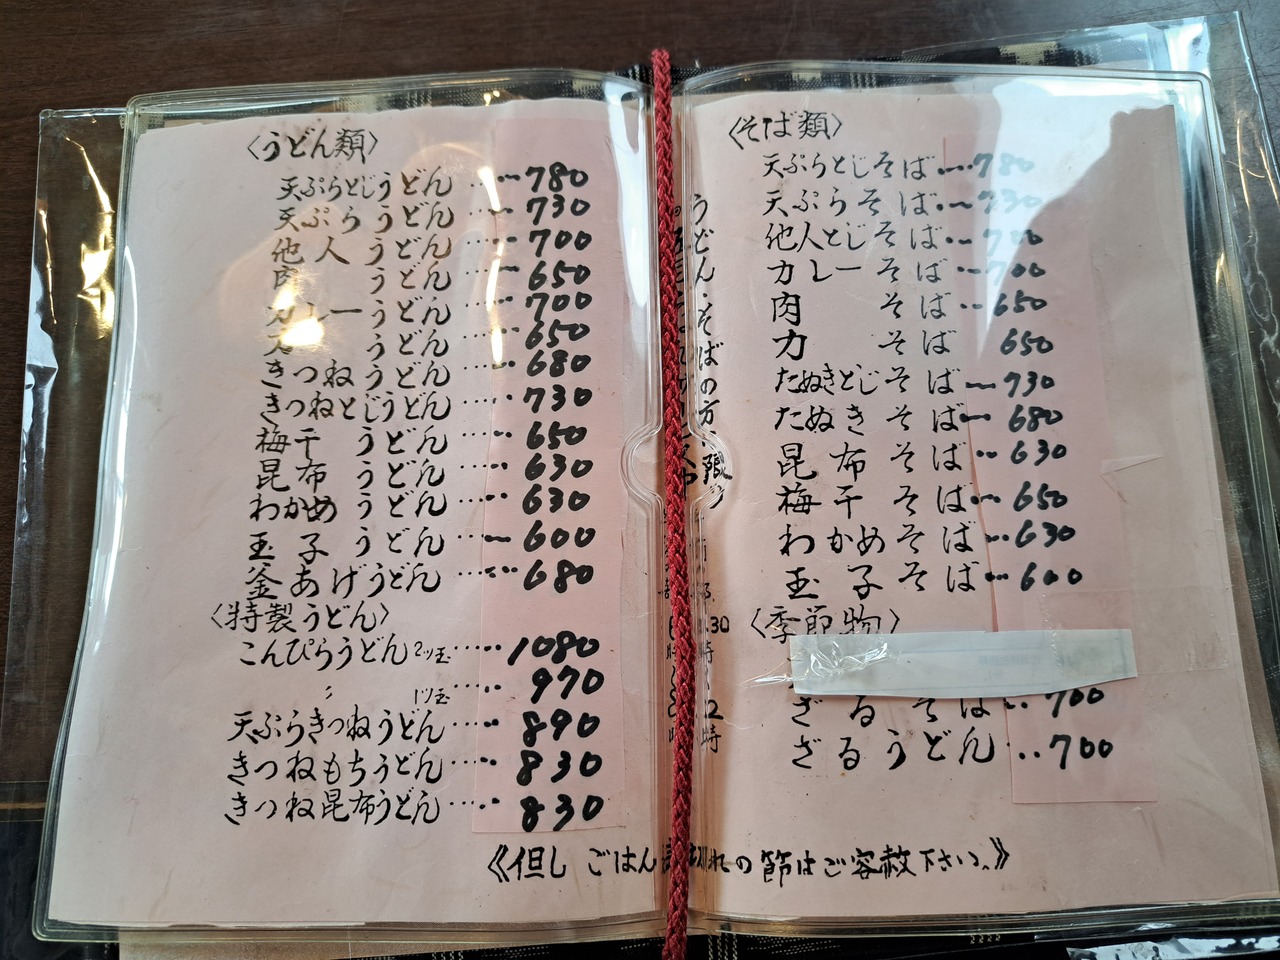 〈うどん類〉
天ぷらとじうどん……780
天ぷらうどん……730
他人うどん……700
肉うどん……650
カレーうどん……700
力うどん……650
きつねうどん……680
きつねとじうどん……730
梅干うどん……650
昆布うどん……630
わかめうどん……630
玉子うどん……600
釜あげうどん……680
〈特製うどん〉
こんぴらうどん2ツ玉……1080
〃 1ツ玉……970
天ぷらきつねうどん……890
きつねもちうどん……830
きつね昆布うどん……830
〈そば類〉
天ぷらとじそば…780
天ぷらそば…730
他人とじそば…700
カレーそば…700
肉そば…650
力そば 650
たぬきとじそば…730
たぬきそば…680
昆布そば…630
梅干そば…650
わかめそば…630
玉子そば…600
〈季節物〉
ざるそば…700
ざるうどん…700
うどん・そばの方、
《但しごはん 切れの節はご容赦下さい。》